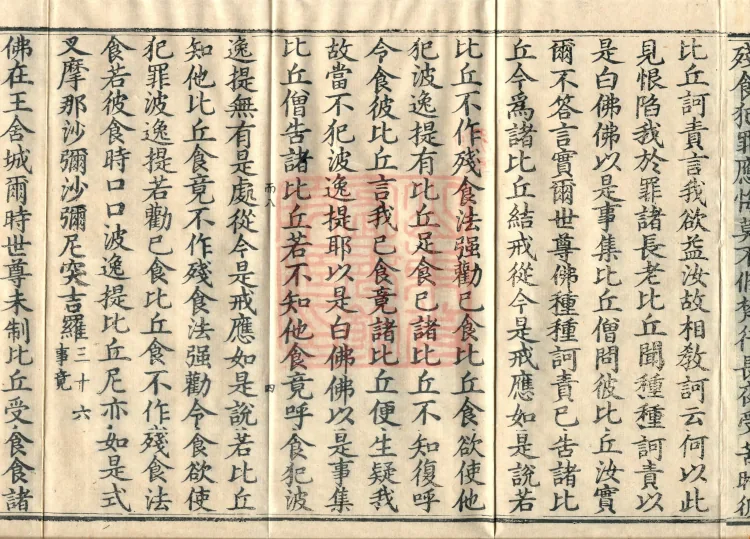 殘食犯罪應悔
比丘訶責言我欲益汝故相教訶云何以此
見恨陷我於罪諸長老比丘聞種種訶責以
是白佛佛以是事集比丘僧問彼比丘汝實
爾不答言實爾世尊佛種種訶責已告諸比
丘今為諸比丘結戒從今是戒應如是說若
比丘不作殘食法強勸已食比丘食欲使他
犯波逸提有比丘足食已諸比丘不知復呼
令食彼比丘言我已食竟諸比丘便生疑我
故當不犯波逸提耶以是白佛佛以是事集
比丘僧告諸比丘若不知他食竟呼食犯波
逸提無有是處從今是戒應如是說若比丘
知他比丘食竟不作殘食法強勸令食欲使
犯罪波逸提若勸已食比丘食不作殘食法
食若彼食時口口波逸提比丘尼亦如是式
叉摩那沙彌沙彌尼突吉羅三十六事竟
佛在王舍城爾時世尊未制比丘受食食諸